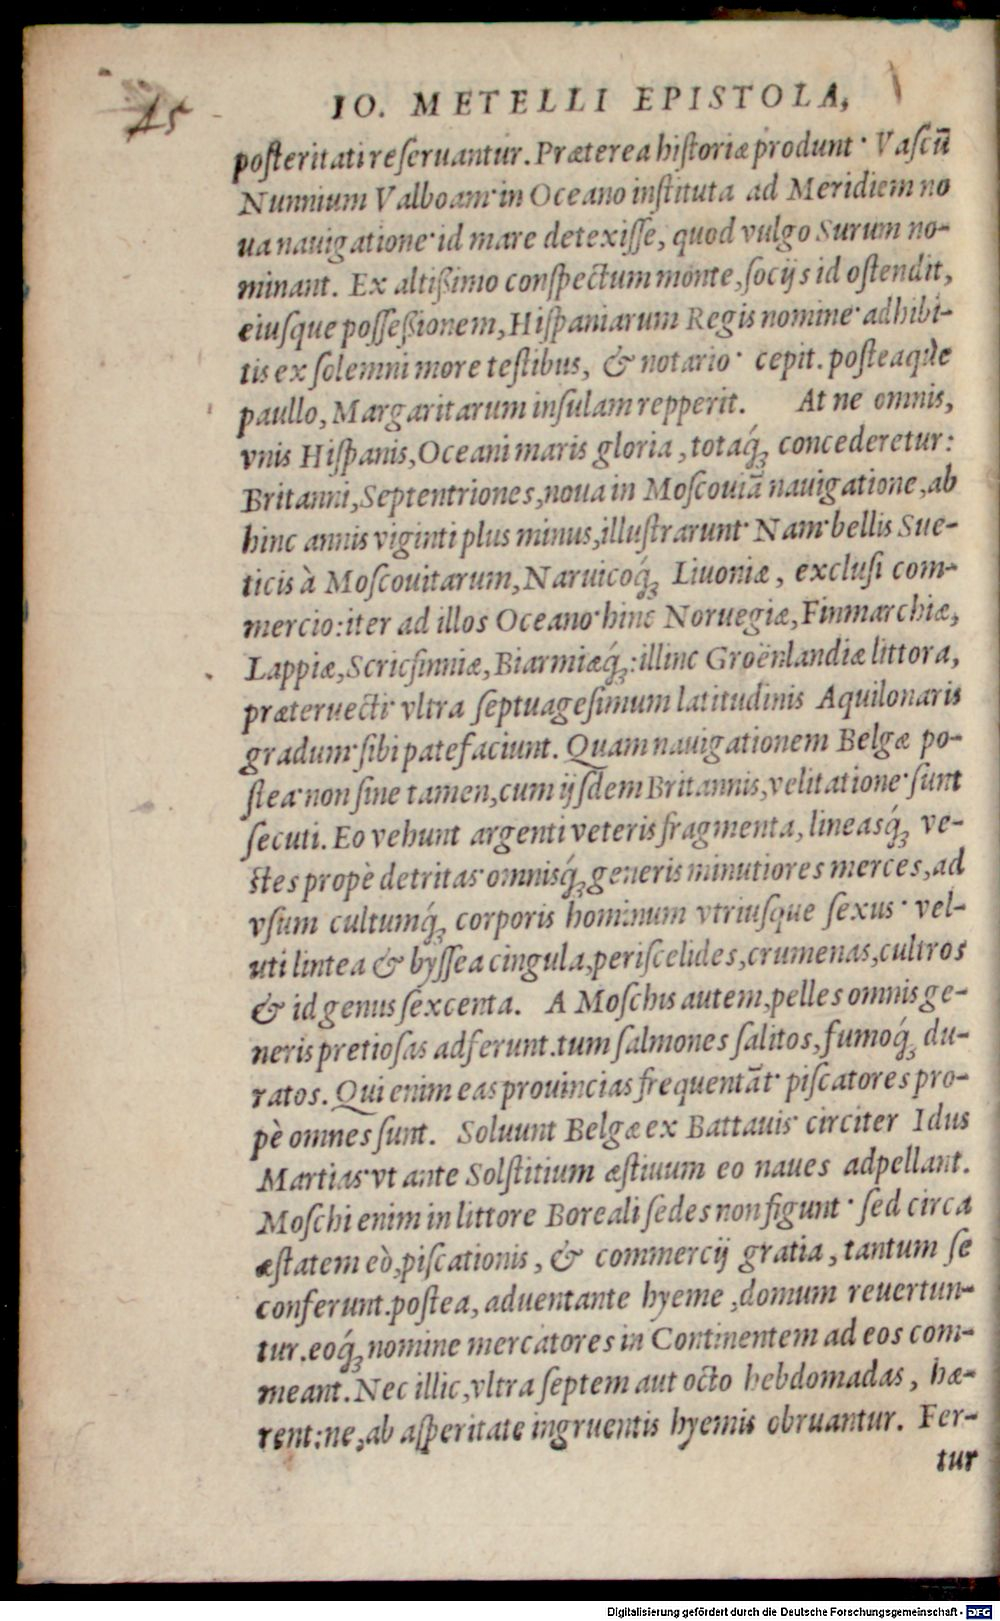 15
IO. METELLI EPISTOLA,
posteritati reseruantur. Præterea historiæ produnt· Vascũ
Nunnium Valboam· in Oceano instituta ad Meridiem no
ua nauigatione· id mare detexisse, quod vulgo Surum no-
minant. Ex altißimo conspectum monte, socijs id ostendit,
eiusque possessionem, Hispaniarum Regis nomine· adhibi-
tis ex solemni more testibus, & notario· cepit. posteaq́ue
paullo, Margaritarum insulam repperit. At ne omnis,
vnis Hispanis, Oceani maris gloria, totaq́; concederetur:
Britanni, Septentriones, noua in Moscouiã nauigatione, ab
hinc annis viginti plus minus, illustrarunt· Nam· bellis Sue-
ticis à Moscouitarum, Naruicoq́; Liuoniæ, exclusi com-
mercio: iter ad illos Oceano· hinc Noruegiæ, Finmarchiæ,
Lappiæ, Scricfinniæ, Biarmiæq́;: illinc Groënlandiæ littora,
præteruecti· vltra septuagesimum latitudinis Aquilonaris
gradum· sibi patefaciunt. Quam nauigationem Belgæ po-
stea· non sine tamen, cum ijsdem Britannis, velitatione· sunt
secuti. Eo vehunt argenti veteris fragmenta, lineasq́; ve-
stes propè detritas· omnisq́; generis minutiores merces, ad
vsum cultumq́; corporis hominum vtriusque sexus· vel-
uti lintea & byssea cingula, periscelides, crumenas, cultros
& id genus sexcenta. A Moschis autem, pelles omnis ge-
neris pretiosas adferunt. tum salmones salitos, fumoq́; du-
ratos. Qui enim eas prouincias frequentãt· piscatores pro-
pè omnes sunt. Soluunt Belgæ ex Battauis· circiter Idus
Martias· vt ante Solstitium æstiuum eo naues adpellant.
Moschi enim in littore Boreali sedes non figunt· sed circa
æstatem eò, piscationis, & commercij gratia, tantum se
conferunt. postea, aduentante hyeme, domum reuertun-
tur. eoq́; nomine mercatores in Continentem ad eos com-
meant. Nec illic, vltra septem aut octo hebdomadas, hæ-
rent: ne, ab asperitate ingruentis hyemis obruantur. Fer-
tur
Digitalisierung gefördert durch die Deutsche Forschungsgemeinschaft - DFG